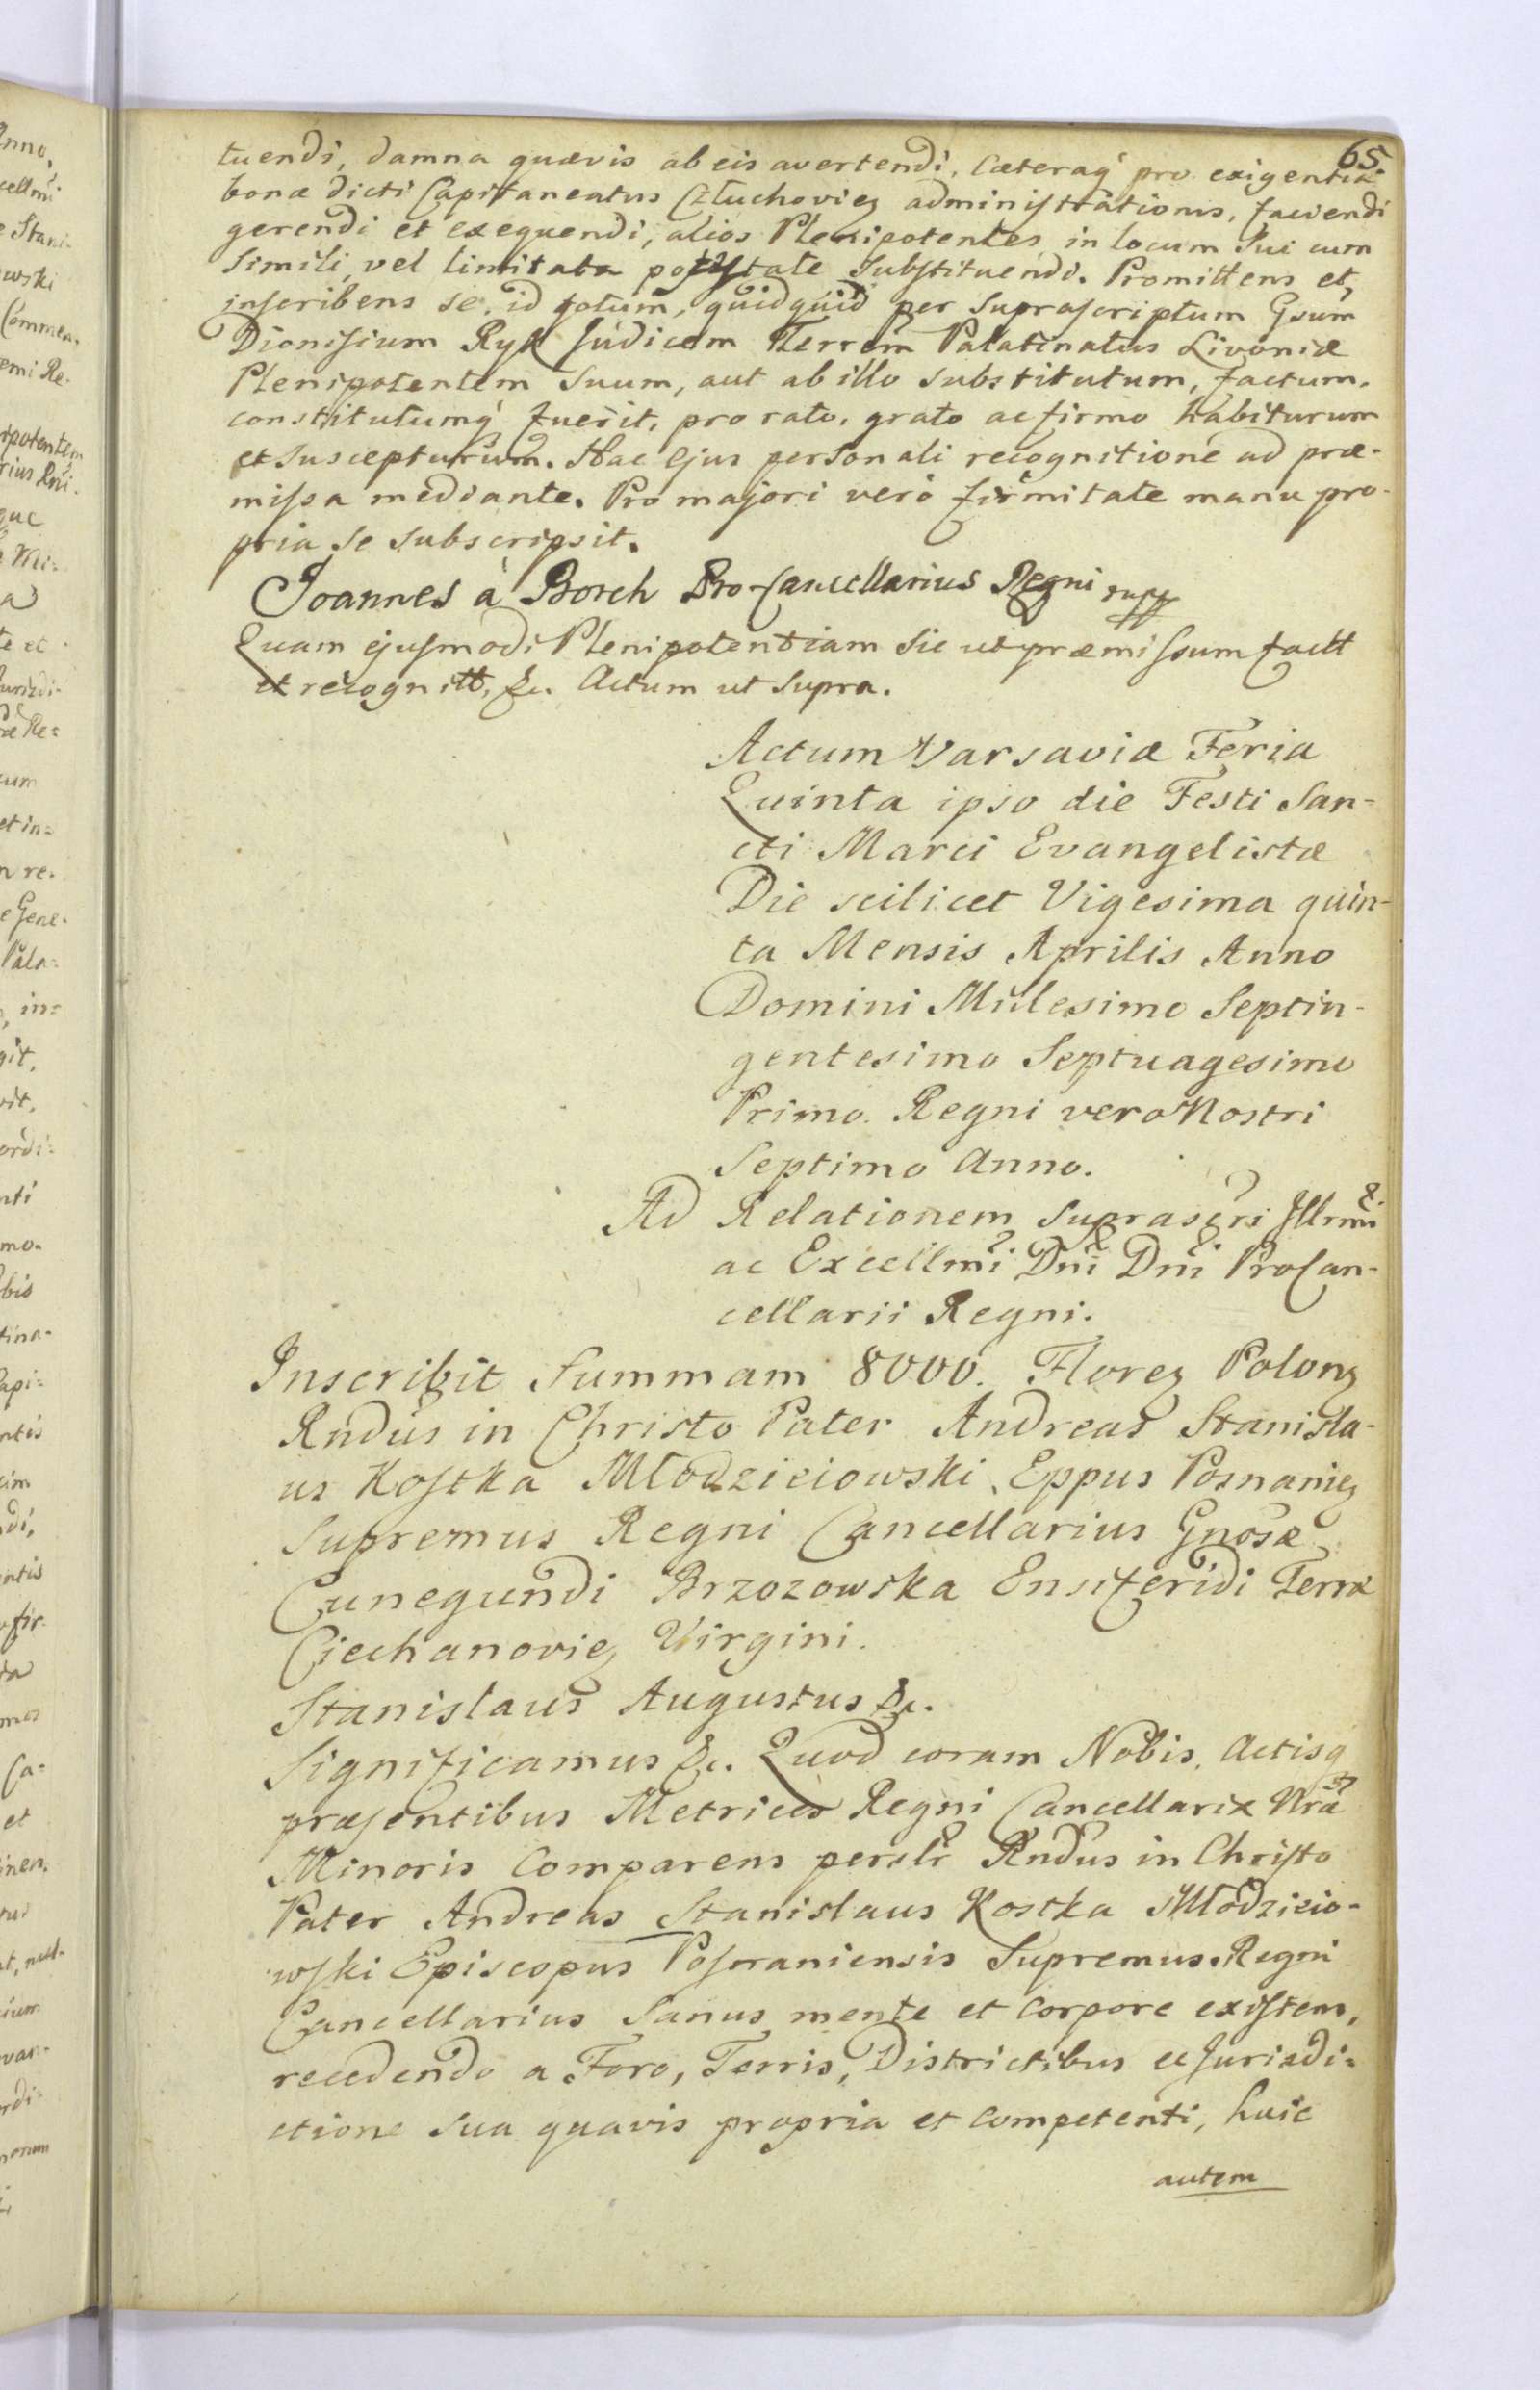 65
tuendi, damna quævis ab eis avertendi, Cæteraq̃ pro exigentia
bonæ dicti Capitaneatus Człuchovieɳ administrationis, faciendi
gerendi et exequendi, alios Plenipotentes in locum Sui cum
Simili, vel limitata potestate Substituendi. Promittens et,
inscribens se, id totum, quidquid per Suprascriptum Gsum
Dionisium Ryk Judicem Terrem̃ Palatinatus Livoniæ
Plenipotentem Suum, aut ab illo substitutum, factum,
constitutumq̃ fuerit, pro rato, grato ac firmo habiturum
et Suscepturum. Hac Ejus personali recognitione ad præ-
missa mediante. Pro majori vero firmitate manu pro-
pria se subscripsit.
Joannes à Borch Pro-Cancellarius Regni mpp
Quam ejusmodi Plenipotentiam Sic ut præmissum factt
et recognitt, &c. Actum ut Supra.
Actum Varsaviæ Feria
Quinta ipso die Festi San-
cti Marci Evangelistæ
Die scilicet Vigesima quin-
ta Mensis Aprilis Anno
Domini Milesimo Septin-
gentesimo Septuagesimo
Primo. Regni vero Nostri
Septimo Anno.
Ad Relationem Suprascri Illrmi
ac Excellmi Dni Dni ProCan-
cellarii Regni.
Inscribit Summam 8000. Floreɳ Polonɳ
Rndus in Christo Pater Andreas Stanisla-
us Kostka Młodzieiowski, Eppus Posnanieɳ
Supremus Regni Cancellarius Gnosæ
Cunegundi Brzozowska Ensiferidi Terræ
Ciechanovieɳ Virgini.
Stanislaus Augustus &c.
Significamus &c. Quod coram Nobis, Actisq̃
præsentibus Metrices Regni Cancellariæ Nræ
Minoris Comparens persłr Rndus in Christo
Pater Andreas Stanislaus Kostka Młodzieio-
wski Episcopus Posnaniensis Supremus Regni
Cancellarius Sanus mente et Corpore existens,
recedendo a Foro, Terris, Districtibus ec Jurisdi=
ctione Sua quavis propria et Competenti, huic
autem